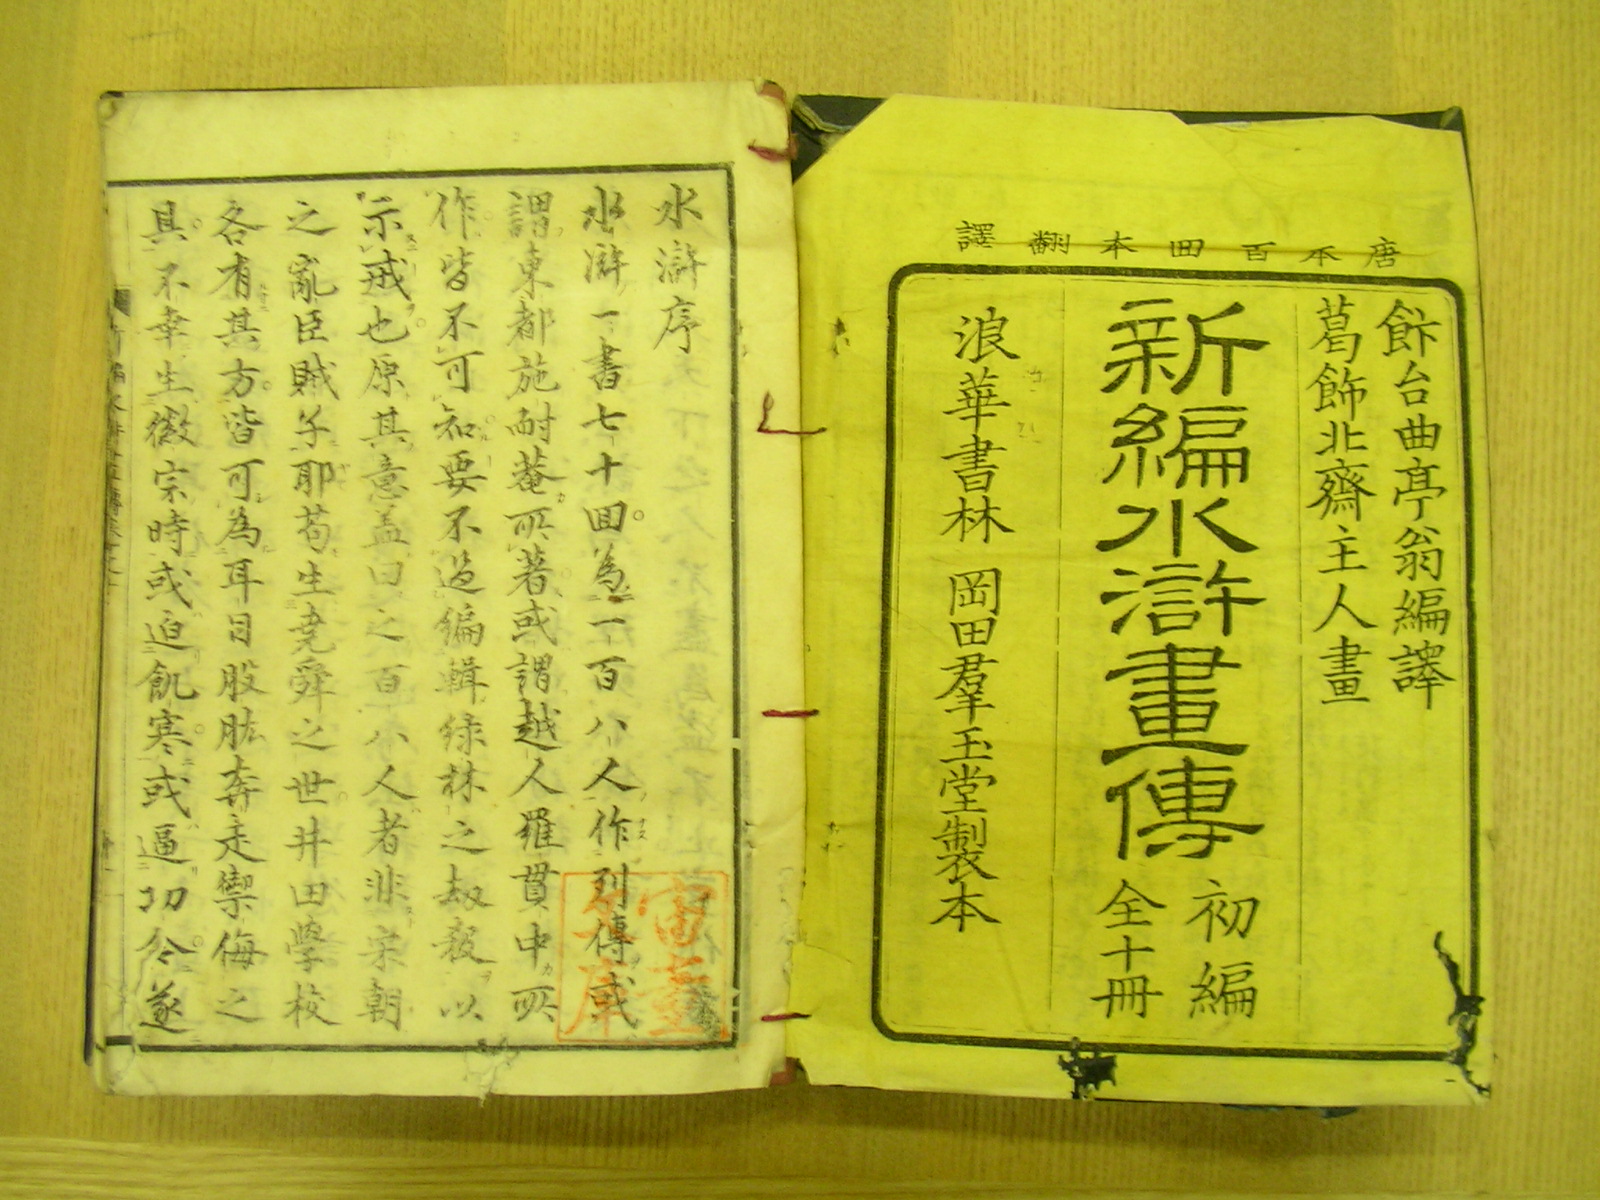 唐本百回本翻譯
飾台曲亭翁編譯
葛飾北齋主人畫
新編水滸畫傳
初編
全十冊
浪華書林 岡田羣玉堂製本
水滸序
水滸一書七十回為一百八人作列傳或
謂東都施耐菴所著或謂越人羅貫中所
作皆不可知要不過編輯緑林之劫殺以
示戒也原其意蓋曰之百八人者非宋朝
之亂臣賊子耶苟生堯舜之世井田學校
各有其方皆可為耳目股肱奔走禦侮之
具不幸生徽宗時或迫飢寒或逼功令遂